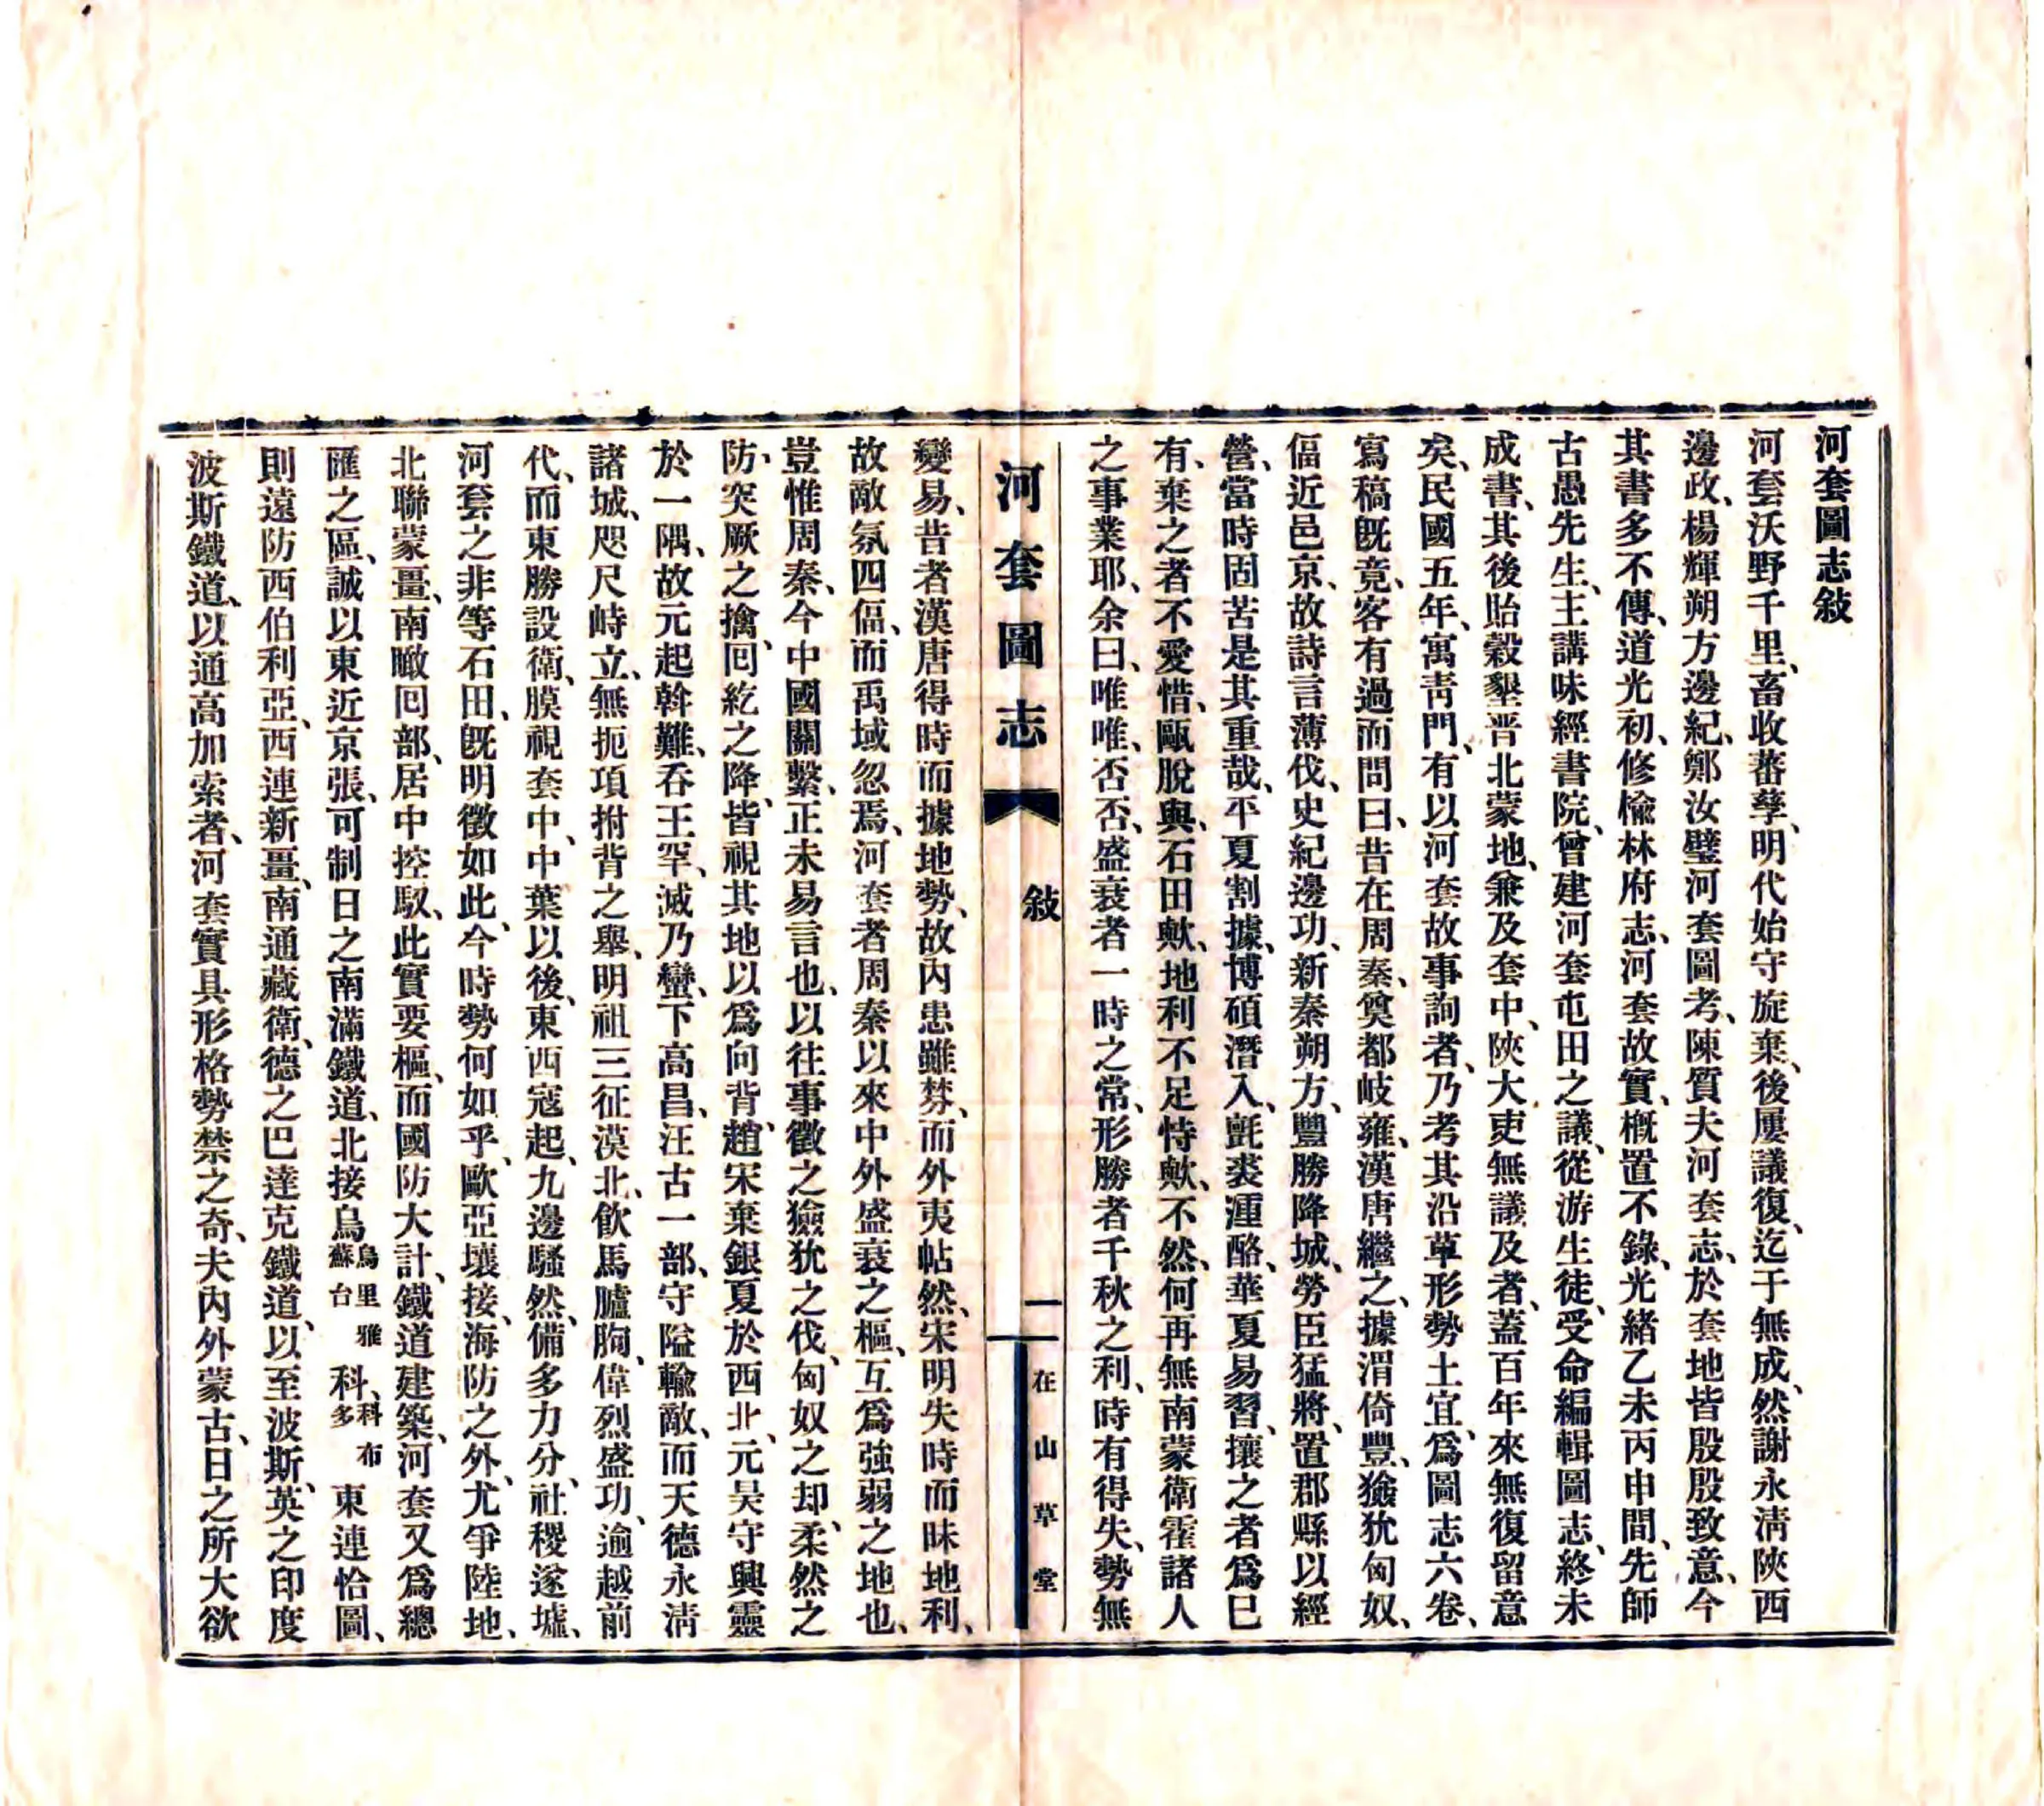 河套圖志敍
河套沃野千里、畜收蕃孳、明代始守旋棄、後屢議復、迄于無成、然謝永淸陝西
邊政、楊輝朔方邊紀、鄭汝璧河套圖考、陳質夫河套志、於套地皆殷殷致意、今
其書多不傳、道光初、修楡林府志、河套故實、槪置不錄、光緒乙未丙申間、先師
古愚先生、主講味經書院、曾建河套屯田之議、從游生徒、受命編輯圖志、終未
成書、其後貽穀墾晋北蒙地、兼及套中、陝大吏無議及者、蓋百年來無復留意
矣、民國五年、寓靑門、有以河套故事詢者、乃考其沿革形勢土宜、爲圖志六卷、
寫稿旣竟、客有過而問曰、昔在周秦、奠都岐雍、漢唐繼之、據渭倚豐、獫狁匈奴、
偪近邑京、故詩言薄伐、史紀邊功、新秦朔方、豐勝降城、勞臣猛將、置郡縣以經
營、當時固苦是其重哉、平夏割據、博碩潛入、氈裘湩酪、華夏易習、攘之者爲已
有、棄之者不愛惜、甌脫與、石田歟、地利不足恃歟、不然、何再無南蒙衛霍諸人
之事業耶、余曰、唯唯、否否、盛衰者一時之常、形勝者千秋之利、時有得失、勢無
河套圖志 敍 一 在山草堂
變易、昔者漢唐得時而據地勢、故內患雖棼、而外夷帖然、宋明失時而昧地利、
故敵氛四偪、而禹域忽焉、河套者周秦以來中外盛衰之樞、互爲強弱之地也、
豈惟周秦、今中國關繫、正未易言也、以往事徵之獫狁之伐、匈奴之却、柔然之
防、突厥之擒、回紇之降、皆視其地以爲向背、趙宋棄銀夏於西北、元昊守興靈
於一隅、故元起斡難、吞王罕、滅乃蠻、下高昌、汪古一部、守隘輸敵、而天德永淸
諸城、咫尺峙立、無扼項拊背之舉、明祖三征漠北、飮馬臚朐、偉烈盛功、逾越前
代、而東勝設衛、膜視套中、中葉以後、東西寇起、九邊騷然、備多力分、社稷遂墟、
河套之非等石田、旣明徵如此、今時勢何如乎、歐亞壤接、海防之外、尤爭陸地、
北聯蒙疆、南瞰回部、居中控馭、此實要樞、而國防大計、鐵道建築、河套又爲總
匯之區、誠以東近京張、可制日之南滿鐵道、北接烏烏里雅蘇台科、科布多東連恰圖、
則遠防西伯利亞、西連新疆、南通藏衛、德之巴達克鐵道、以至波斯、英之印度
波斯鐵道、以通高加索者、河套實具形格勢禁之奇、夫內外蒙古、日之所大欲